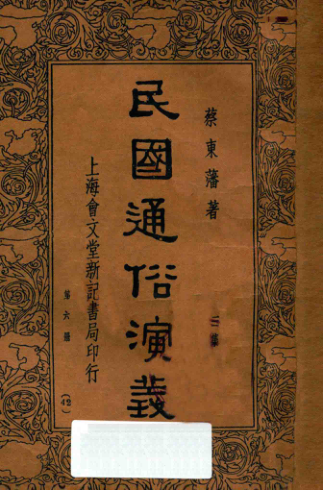 蔡東藩著
民國通俗演義
上海會文堂新記書局印行
第六冊